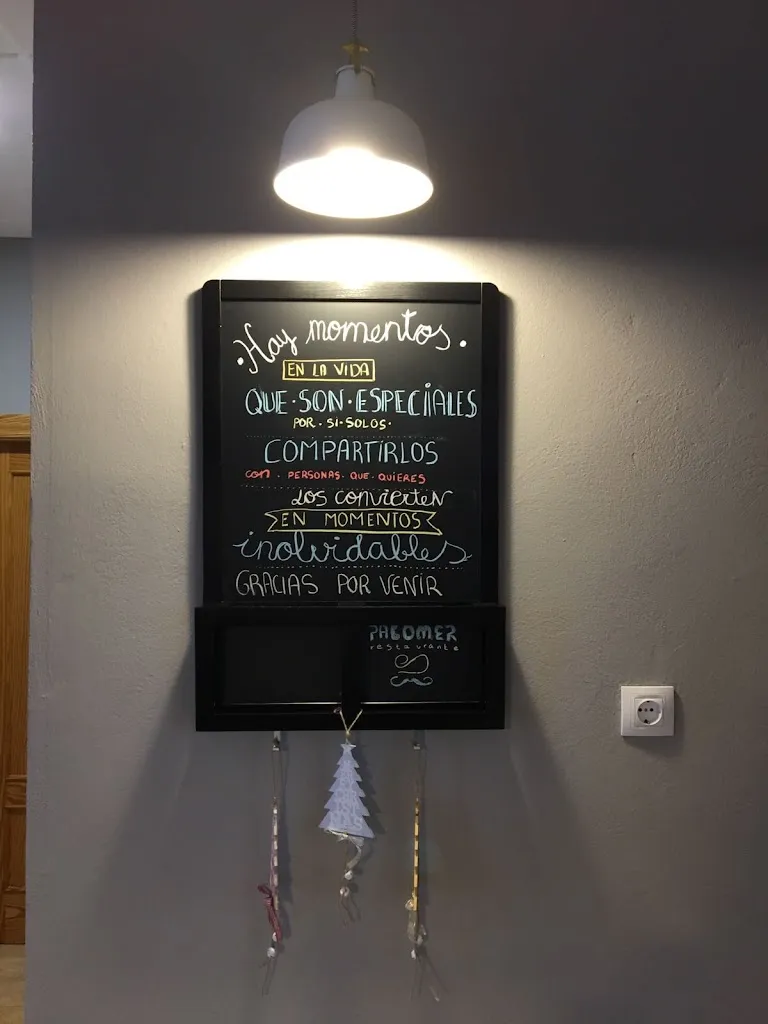 Hay momentos
EN LA VIDA
QUE·SON·ESPECIIALES
POR·SI·SOLOS·
COMPARTIRLOS
con·PERSONAS·QUE·QUIERES
LOS CONVIERTEN
EN MOMENTOS
inolvidables
GRACIAS POR VENIR
PALOMER
restaurante